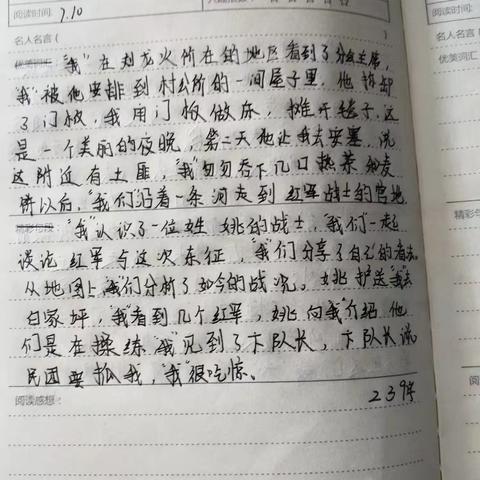 阅读时间: 7.10
阅读时间:
名人名言(
名人名言(
"我"在刘龙火所在的地区看到了分会主席,
优美词汇
"我"被他安排到村公所的一间屋子里,他拆卸
了门板,我用门板做床,摊开毯子,这
是一个美丽的夜晚,第二天他让我去安塞,说
这附近有土匪,"我"匆匆吞下几口热茶和麦
饼以后,"我"们沿着一条河走到红军战士的营地
"我"认识了一位姓姚的战士,"我"们一起
谈论红军与这次东征,"我"们分享了自己的看法
从地图上"我"们分析了如今的战况。姚护送"我"去
白家坪,"我"看到几个红军,姚向"我"介绍他
们是在操练"我"见到了卞队长,卞队长说
民团要抓我,"我"很吃惊、
阅读感想:
239字